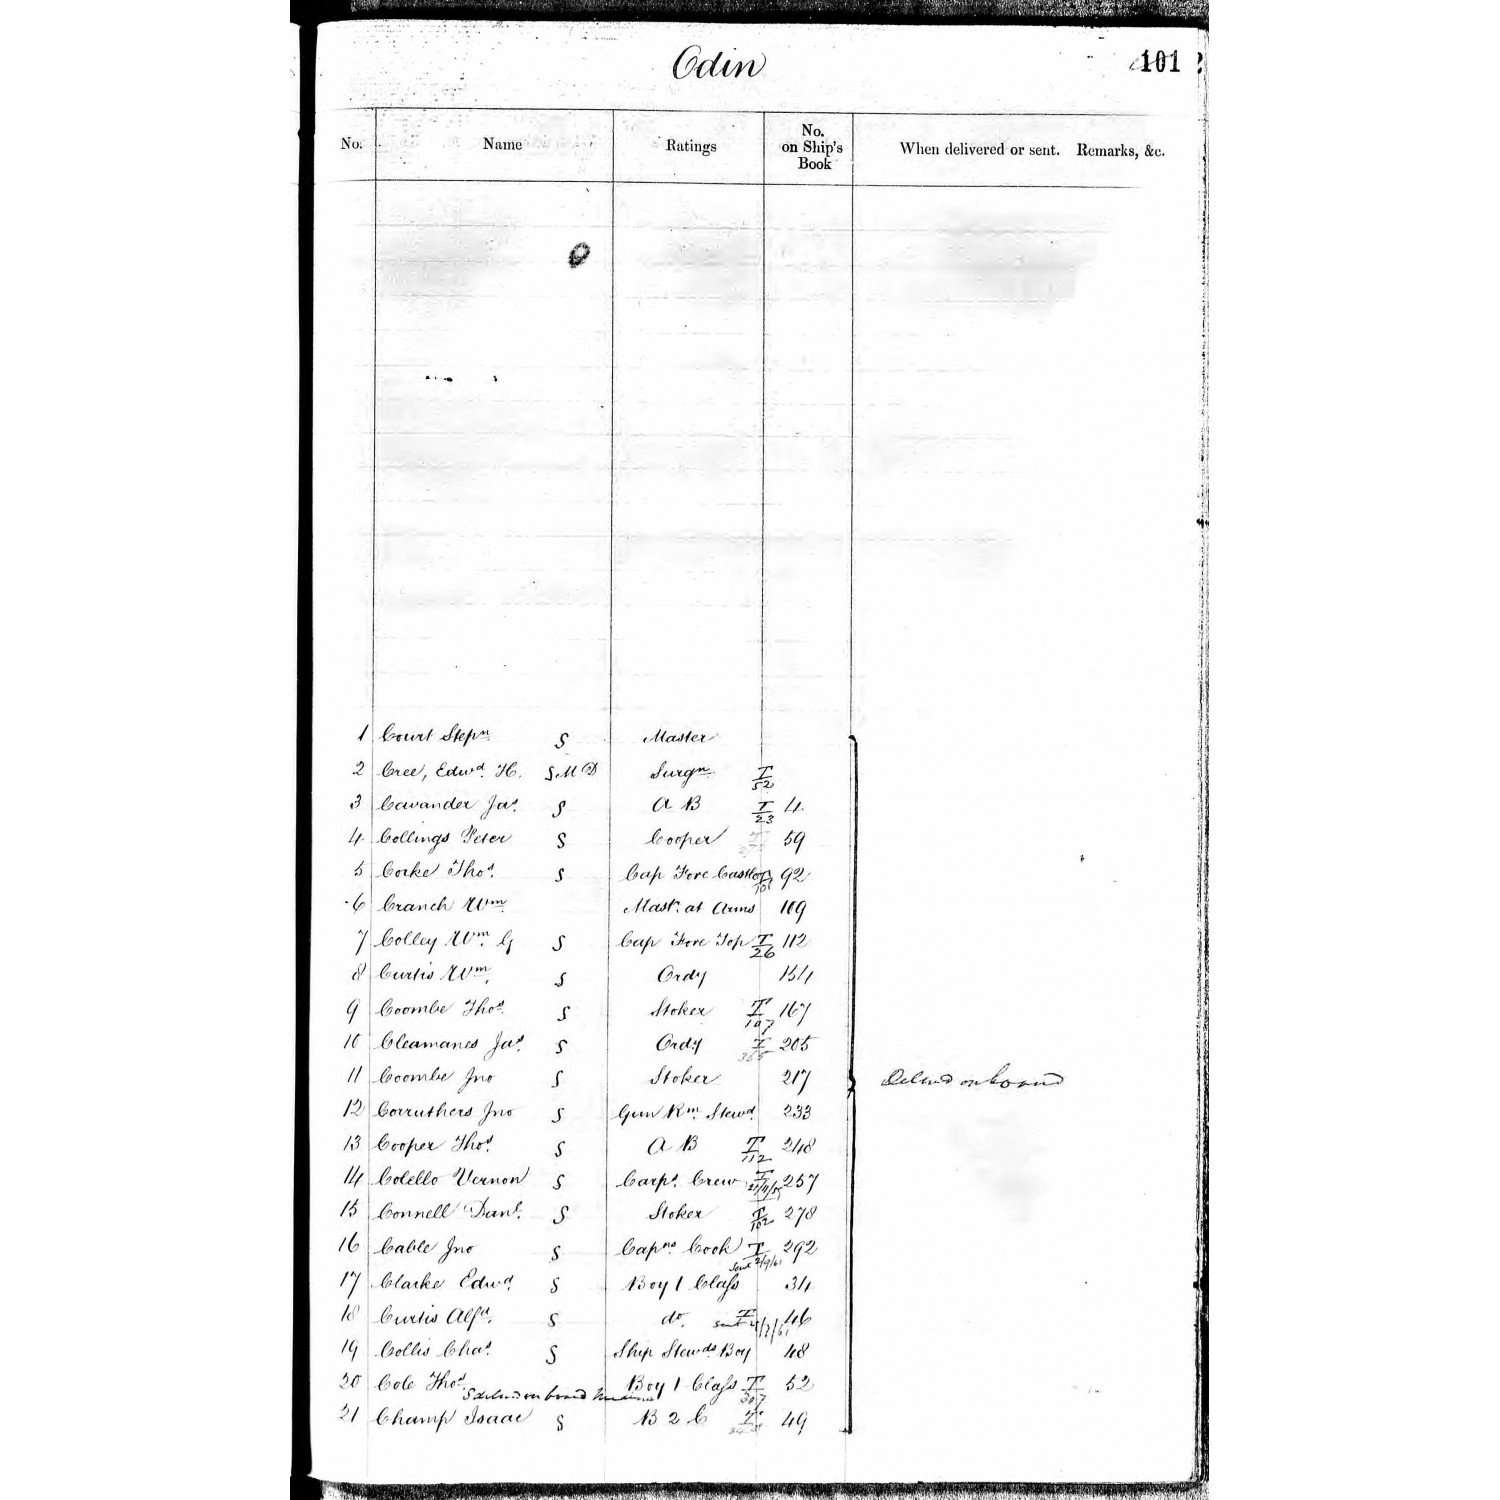 Odin
101
No. Name Ratings No. on Ship's Book When delivered or sent. Remarks, &c.
1 Court Stepn S Master
2 Cree, Edwd. H. S M D Surgn T/52
3 Cavander Jas. S A B T/23 4
4 Collings Peter S Cooper 59
5 Corke Thos. S Cap Fore Castle T/101 92
6 Cranch Wm Mastr. at Arms 109
7 Colley Wm. G S Cap Fore Top T/26 112
8 Curtis Wm. S Ordy 154
9 Coombe Thos. S Stoker T/107 167
10 Cleamanes Jas. S Ordy T/365 205
11 Coombe Jno S Stoker 217 Delived on board
12 Corruthers Jno S Gun Rm. Stewd. 233
13 Cooper Thos. S A B T/112 248
14 Cotello Vernon S Carps. Crew T 257
15 Connell Danl. S Stoker T/102 278
16 Cable Jno S Capns Cook T sent 2/9/61 292
17 Clarke Edwd. S Boy 1 Class 34
18 Curtis Alfd. S do. T sent 46
19 Collis Chas. S Ship Stewds Boy 48
20 Cole Thos. S delived on board Boy 1 Class T/307 52
21 Champ Isaac S B 2 C T 49